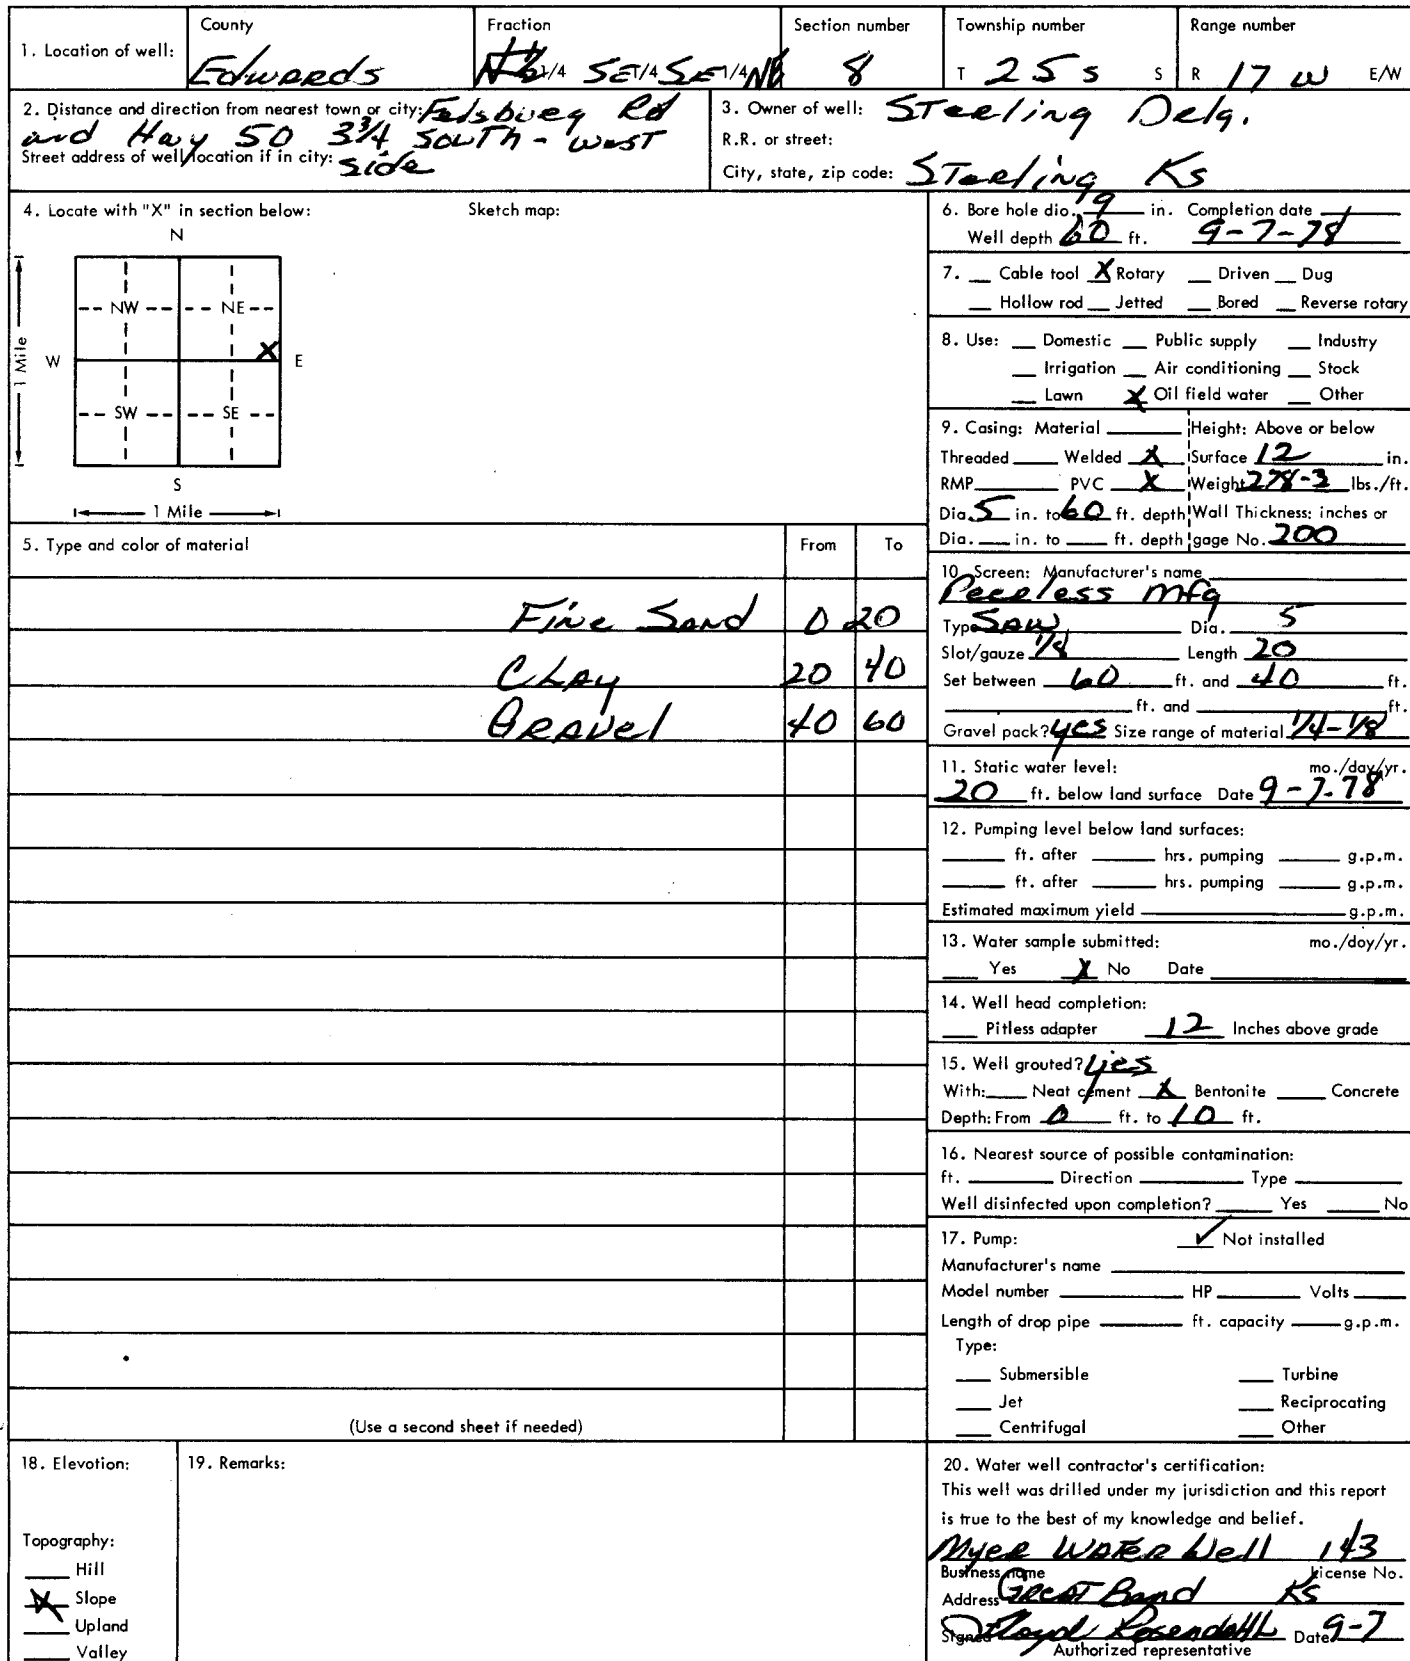 1. Location of well:
County
Edwards
Fraction
1/4 SE 1/4 SE 1/4 NE
Section number
8
Township number
T 25 s S
Range number
R 17 W E/W
2. Distance and direction from nearest town or city: Felsburg Rd
and Hwy 50 3 3/4 South - west
Street address of well location if in city: side
3. Owner of well: Sterling Delg.
R.R. or street:
City, state, zip code: Sterling Ks
4. Locate with "X" in section below:
Sketch map:
N
NW NE
W X E
SW SE
S
1 Mile
1 Mile
5. Type and color of material From To
Fine Sand 0 20
Clay 20 40
Gravel 40 60
(Use a second sheet if needed)
6. Bore hole dia. 9 in. Completion date
Well depth 60 ft. 9-7-78
7. __ Cable tool X Rotary __ Driven __ Dug
__ Hollow rod __ Jetted __ Bored __ Reverse rotary
8. Use: __ Domestic __ Public supply __ Industry
__ Irrigation __ Air conditioning __ Stock
__ Lawn X Oil field water __ Other
9. Casing: Material ____ Height: Above or below
Threaded ____ Welded X Surface 12 in.
RMP ____ PVC X Weight 278-3 lbs./ft.
Dia. 5 in. to 60 ft. depth Wall Thickness: inches or
Dia. __ in. to __ ft. depth gage No. 200
10. Screen: Manufacturer's name
Peerless mfg
Type SAW Dia. 5
Slot/gauze 1/8 Length 20
Set between 60 ft. and 40 ft.
____ ft. and ____ ft.
Gravel pack? yes Size range of material 1/4-1/8
11. Static water level: mo./day/yr.
20 ft. below land surface Date 9-7-78
12. Pumping level below land surfaces:
____ ft. after ____ hrs. pumping ____ g.p.m.
____ ft. after ____ hrs. pumping ____ g.p.m.
Estimated maximum yield ____ g.p.m.
13. Water sample submitted: mo./day/yr.
__ Yes X No Date ____
14. Well head completion:
__ Pitless adapter 12 Inches above grade
15. Well grouted? yes
With: __ Neat cement X Bentonite __ Concrete
Depth: From 0 ft. to 10 ft.
16. Nearest source of possible contamination:
ft. ____ Direction ____ Type ____
Well disinfected upon completion? ____ Yes ____ No
17. Pump: ✓ Not installed
Manufacturer's name ____
Model number ____ HP ____ Volts ____
Length of drop pipe ____ ft. capacity ____ g.p.m.
Type:
__ Submersible __ Turbine
__ Jet __ Reciprocating
__ Centrifugal __ Other
18. Elevation:
Topography:
__ Hill
X Slope
__ Upland
__ Valley
19. Remarks:
20. Water well contractor's certification:
This well was drilled under my jurisdiction and this report
is true to the best of my knowledge and belief.
Myer Water Well 143
Business name License No.
Address Great Band Ks
Signed Floyd Rosendahl Date 9-7
Authorized representative